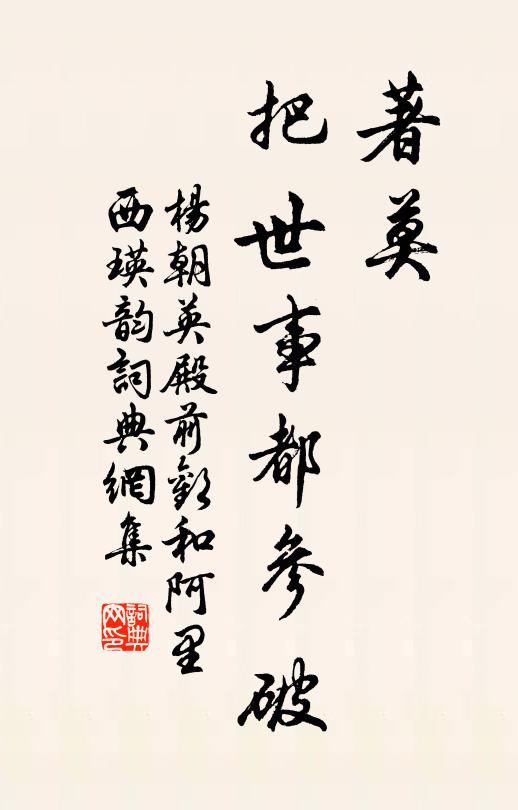 著莫
把世事都參破
楊朝英殿前歡和阿里
西瑛韵詞典網集
詞典
网印